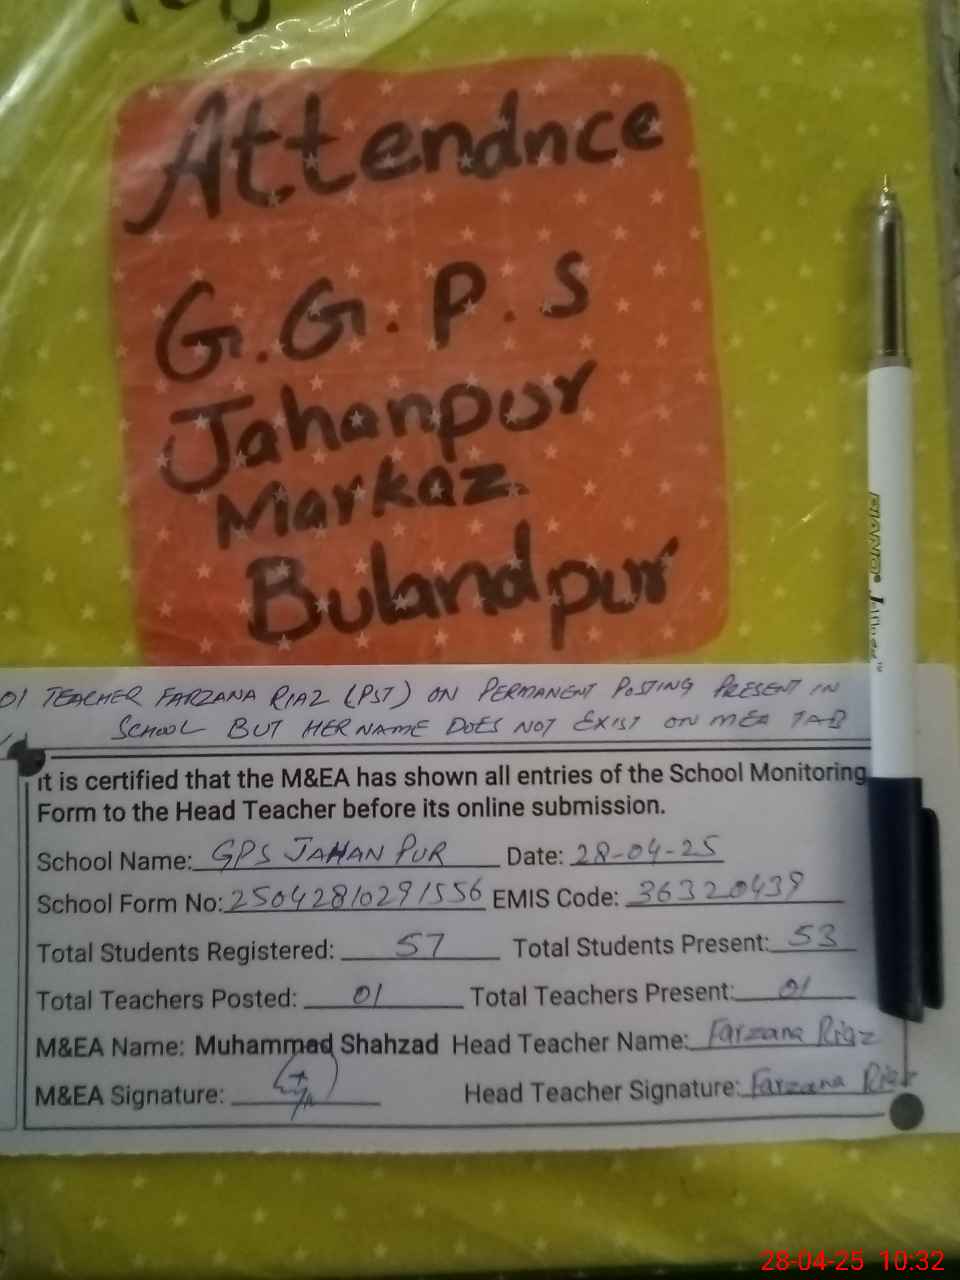 Attendnce
G.G.P.S
Jahanpur
Markaz.
Bulandpur
01 TEACHER FARZANA RIAZ (PST) ON PERMANENT POSTING PRESENT IN
SCHOOL BUT HER NAME DOES NOT EXIST ON MEA TAB
It is certified that the M&EA has shown all entries of the School Monitoring
Form to the Head Teacher before its online submission.
School Name: GPS JAHAN PUR Date: 28-04-25
School Form No: 25042810291556 EMIS Code: 36320439
Total Students Registered: 57 Total Students Present: 53
Total Teachers Posted: 01 Total Teachers Present: 01
M&EA Name: Muhammad Shahzad Head Teacher Name: Farzana Riaz
M&EA Signature: Head Teacher Signature: Farzana Riaz
28-04-25 10:32